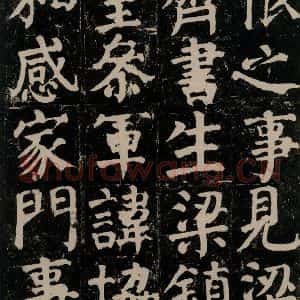 恨之事見梁
齊書生梁鎮
室叅軍諱協
和感家門事
Shufawang.cn